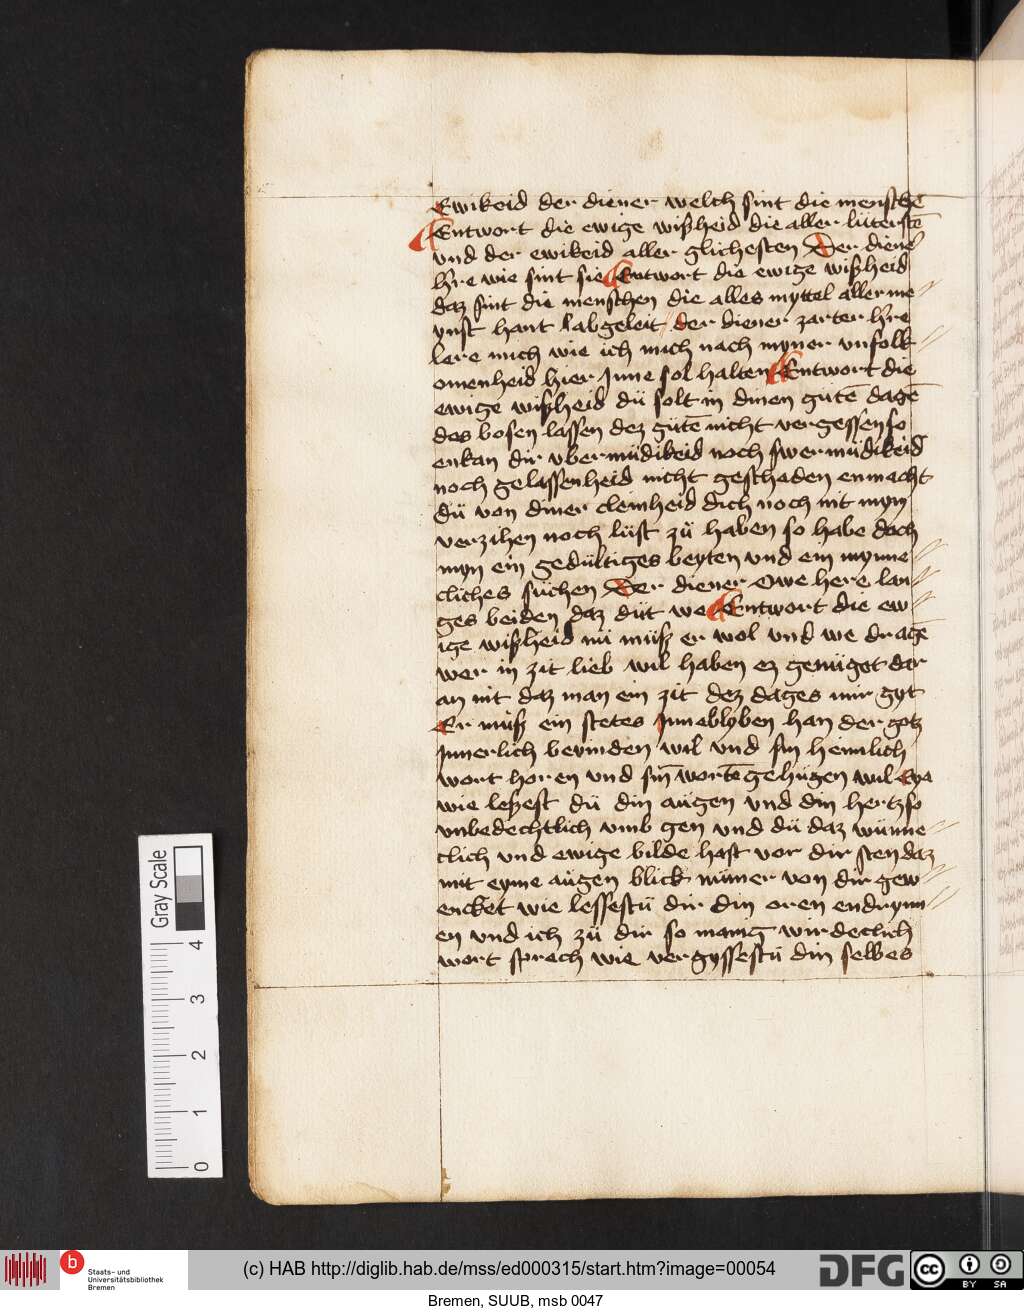 Ewikeid der diener welch sint die menschē
Entwort die ewige wißheid die aller lüterstē
vnd der ewikeid aller glichesten Der dienẽ
hr̄e wie sint sie Entwort die ewige wißheid
daz sint die menschen die alles myttel allerme
ynst hant labgeleit der diener zarter hr̄e
lere mich wie ich mich nach myner vnfolk
omenheid hier Inne sol halten Entwort die
ewige wißheid dü solt in dinen gütē dagē
des bosen lassen dez gütē nicht vergessen so
enkan dir vbermüdikeid noch swermüdikeid
noch gelassenheid nicht geschaden enmacht
dü von diner cleinheid dich noch nit mym
verzihen noch lüst zü haben so habe doch
myn ein gedültiges beyten vnd ein mynne
cliches süchen Der diener Owe here lan
ges beiden daz düt we Entwort die ew
ige wißheid nü müß er wol vnd we dragē
wer in zit lieb wil haben ez genüget dar
an nit daz man ein zit dez dages mir gyt
Er müß ein stetes Inneblyben han der gotz
Innerlich bevinden wil vnd sin heimlich
wort horen vnd sin̄ wortē gehügen wil Eya
wie leßest dü din aügen vnd din hertz so
vnbedechtlich vmb gen vnd dü daz wünne
clich vnd ewige bilde hast vor dir sten daz
mit eyme aügen blick nümer von dir gew
encket wie lessestü dir din oren endrynn
en vnd ich zü dir so manig wirdeclich
wort sprach wie vergyssestü din selbes
Gray Scale
4
3
2
1
0
b
Staats- und
Universitätsbibliothek
Bremen
(c) HAB http://diglib.hab.de/mss/ed000315/start.htm?image=00054
DFG
cc BY SA
Bremen, SUUB, msb 0047